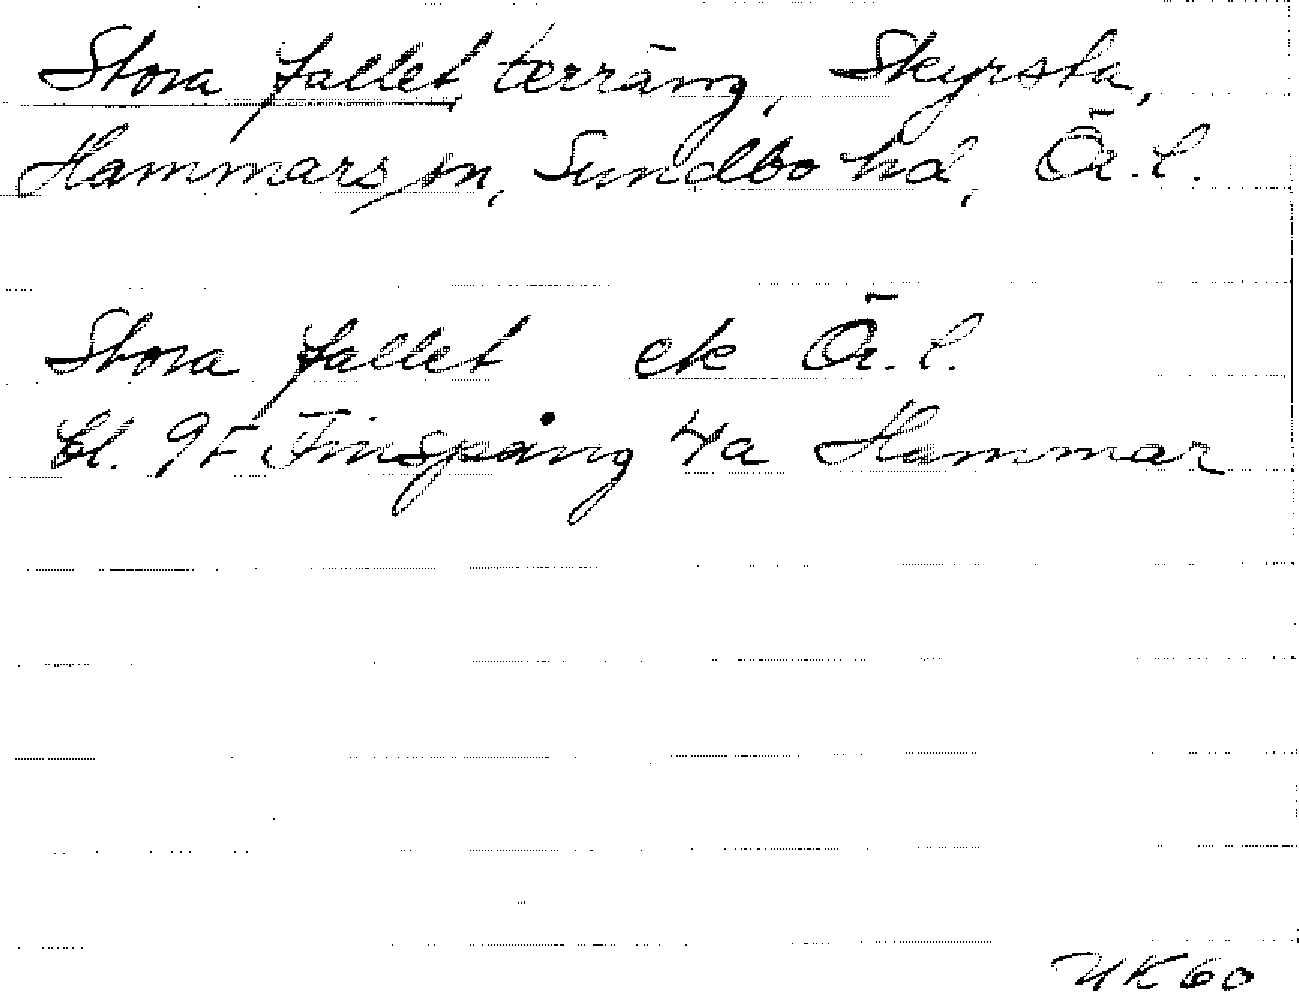 Stora fallet, terräng, Skyrsta,
Hammars sn, Sundbo hd, Ör. l.
Stora fallet ek Ör. l.
bl. 9F Finspång 4a Hammar
UK60